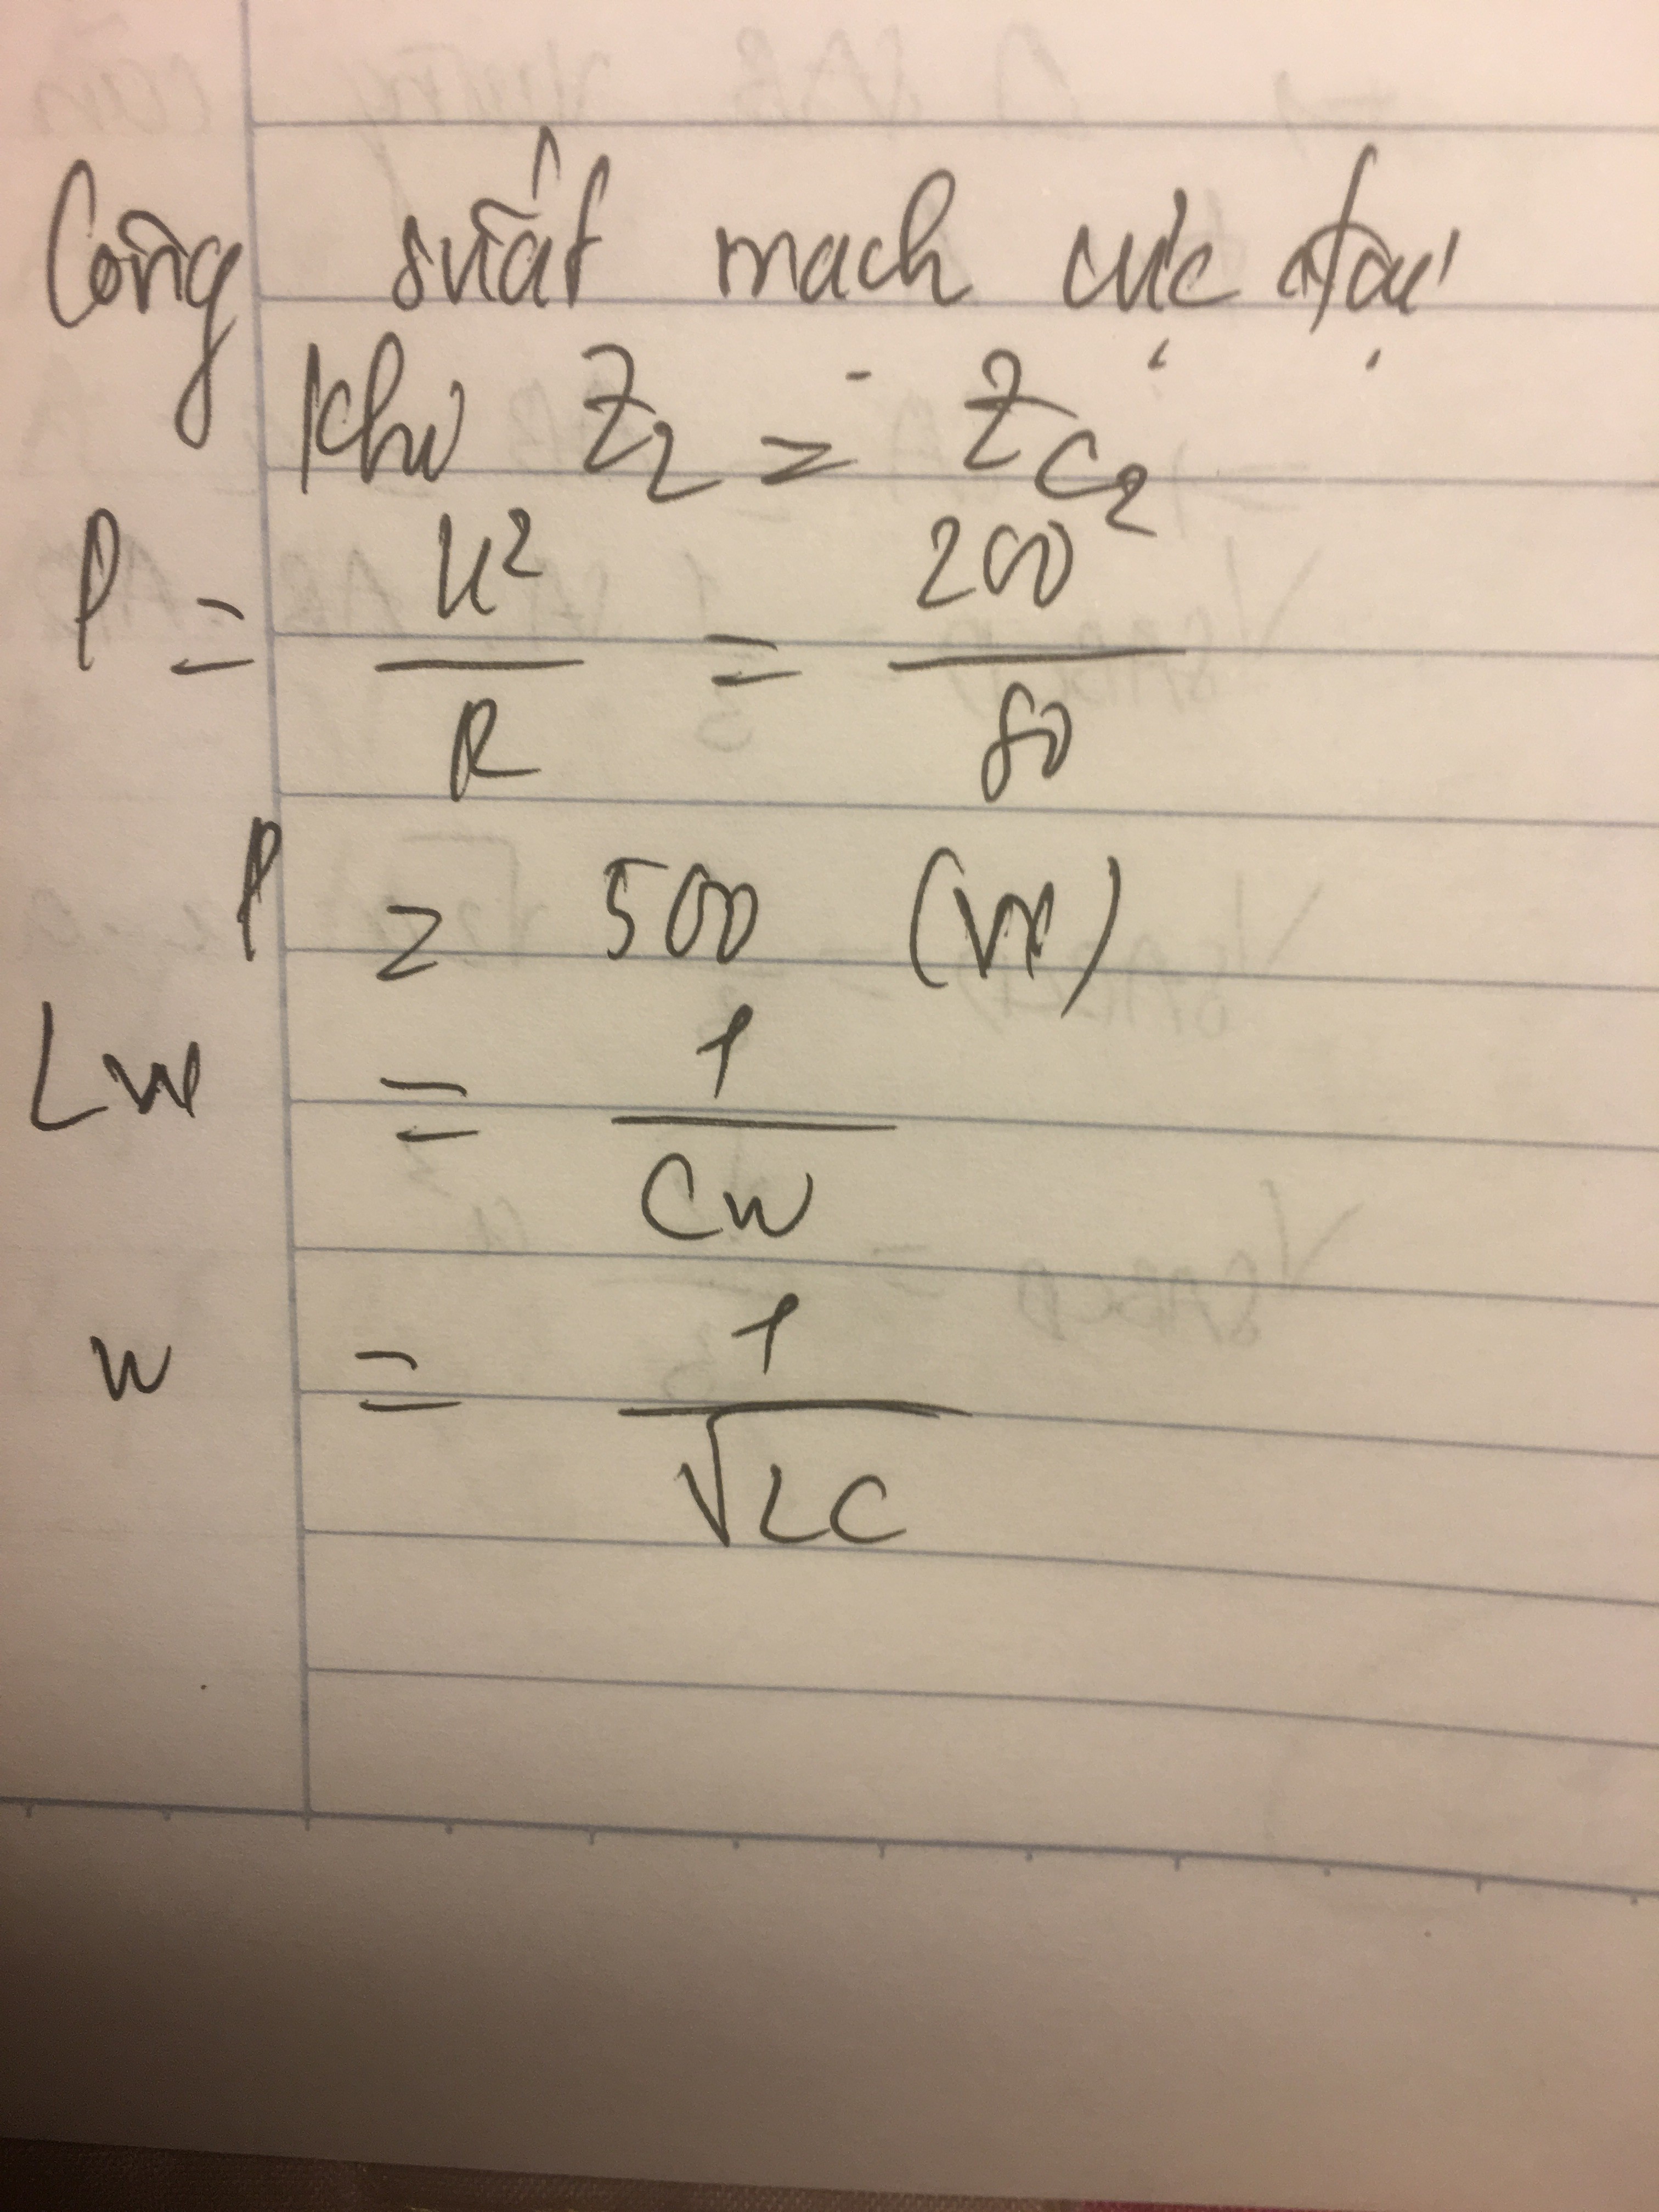 Công suất mạch cực đại
khi Z_L = Z_C2
P = U² / R = 200² / 80
P = 500 (W)
Lω = 1 / Cω
ω = 1 / √LC